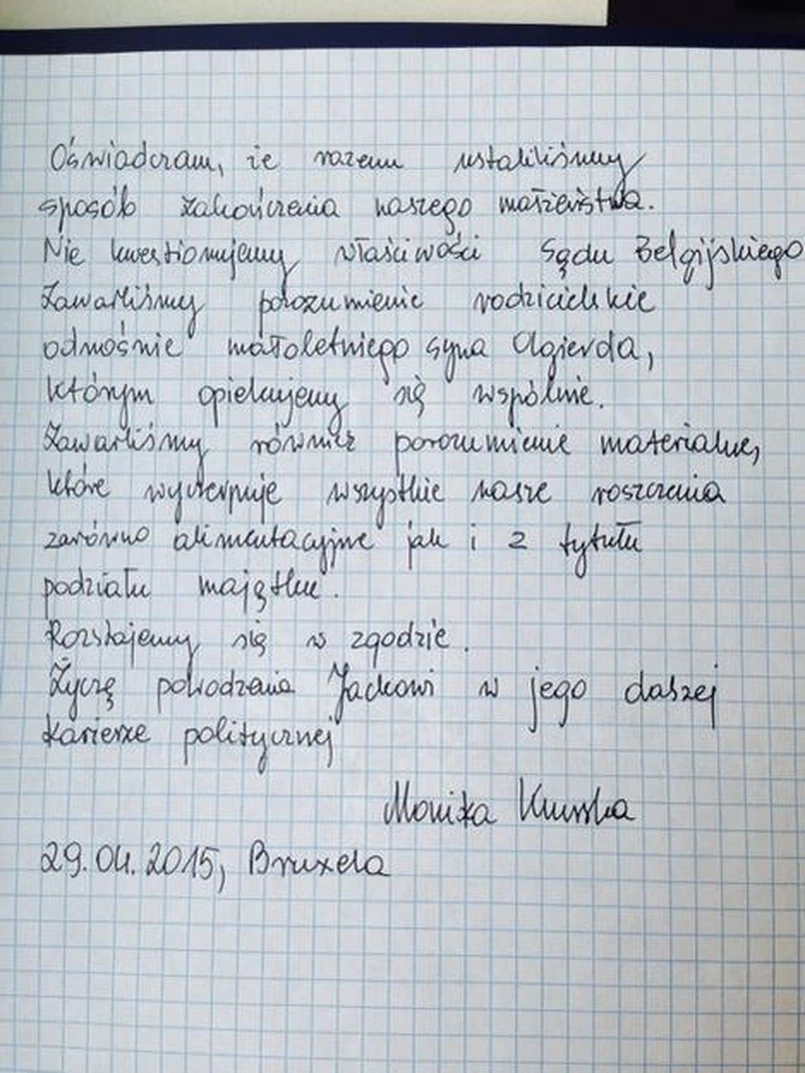 Oświadczam, że razem ustaliliśmy
sposób zakończenia naszego małżeństwa.
Nie kwestionujemy właściwości Sądu Belgijskiego
Zawarliśmy porozumienie rodzicielskie
odnośnie małoletniego syna Olgierda,
którym opiekujemy się wspólnie.
Zawarliśmy również porozumienie materialne,
które wyczerpuje wszystkie nasze roszczenia
zarówno alimentacyjne jak i z tytułu
podziału majątku.
Rozstajemy się w zgodzie.
Życzę powodzenia Jackowi w jego daszej
karierze politycznej
Monika Kurska
29.04.2015, Bruxela